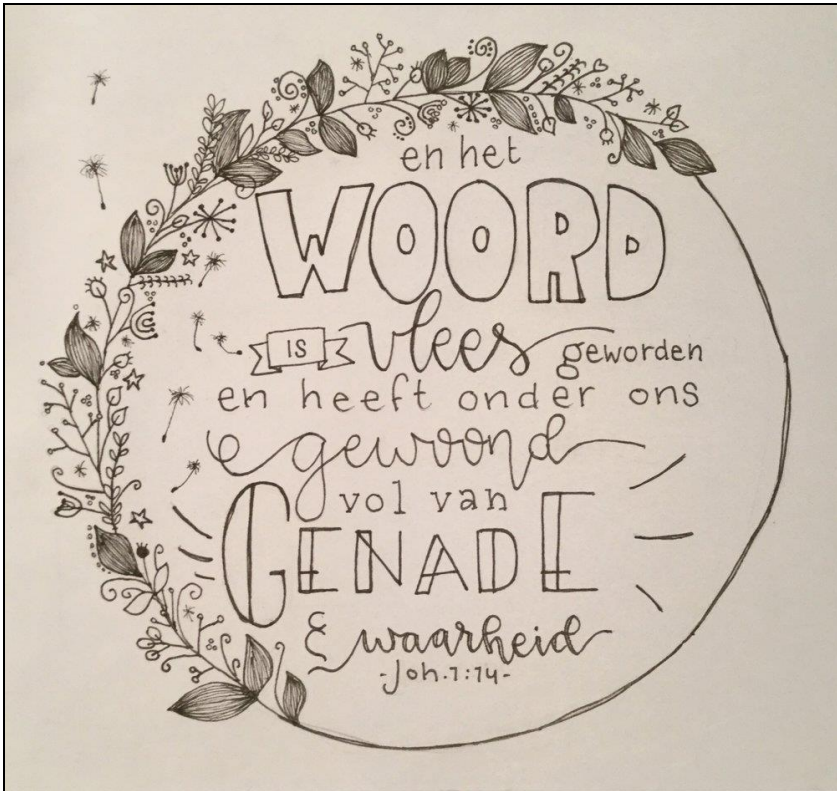 en het
WOORD
IS vlees geworden
en heeft onder ons
gewoond
vol van
GENADE
& waarheid
-Joh.1:14-